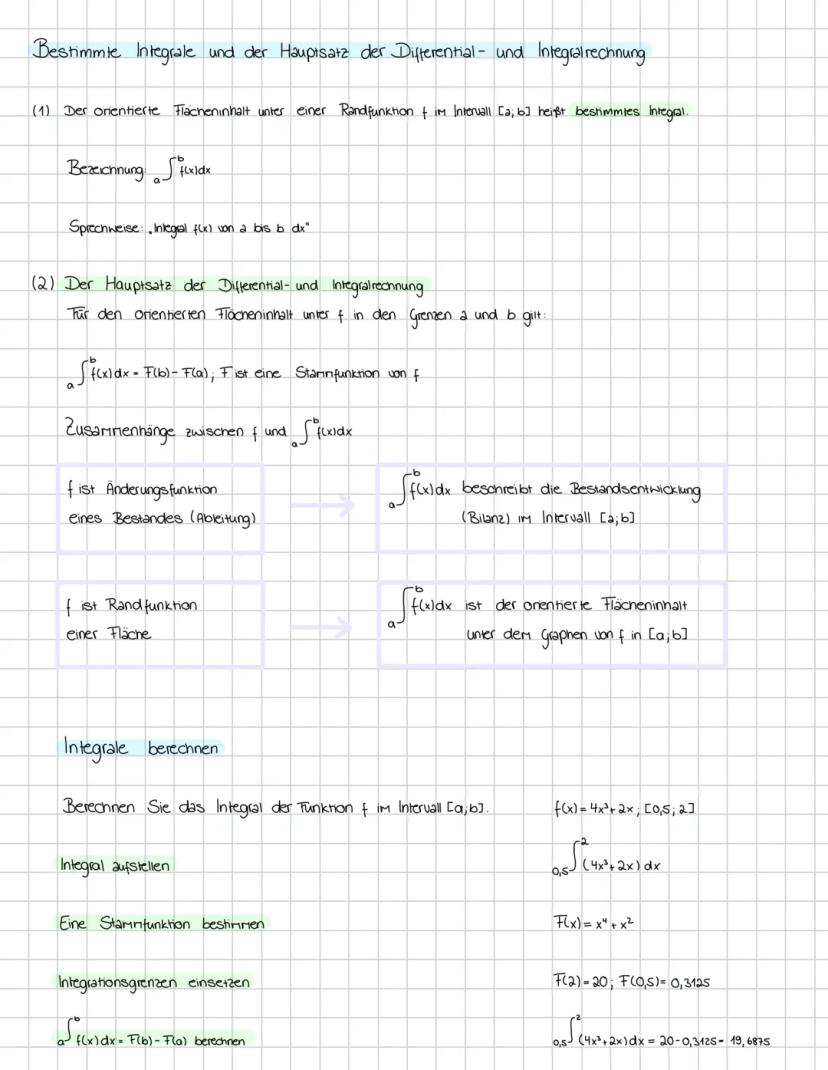 Bestimmte Integrale und der Hauptsatz der Differential- und Integralrechnung
(1) Der orientierte Flächeninhalt unter einer Randfunktion f im Intervall [a;b] heißt bestimmtes Integral.
Bezeichnung: ₐ∫ᵇ f(x)dx
Sprechweise: „Integral f(x) von a bis b dx"
(2) Der Hauptsatz der Differential- und Integralrechnung
Für den orientierten Flächeninhalt unter f in den Grenzen a und b gilt:
ₐ∫ᵇ f(x)dx = F(b) - F(a); F ist eine Stammfunktion von f
Zusammenhänge zwischen f und ₐ∫ᵇ f(x)dx
f ist Änderungsfunktion
eines Bestandes (Ableitung)
ₐ∫ᵇ f(x)dx beschreibt die Bestandsentwicklung
(Bilanz) im Intervall [a;b]
f ist Randfunktion
einer Fläche
ₐ∫ᵇ f(x)dx ist der orientierte Flächeninhalt
unter dem Graphen von f in [a;b]
Integrale berechnen
Berechnen Sie das Integral der Funktion f im Intervall [a;b]. f(x) = 4x³ + 2x; [0,5; 2]
Integral aufstellen ₀,₅∫² (4x³ + 2x) dx
Eine Stammfunktion bestimmen F(x) = x⁴ + x²
Integrationsgrenzen einsetzen F(2) = 20; F(0,5) = 0,3125
ₐ∫ᵇ f(x)dx = F(b) - F(a) berechnen ₀,₅∫² (4x³ + 2x)dx = 20 - 0,3125 = 19,6875